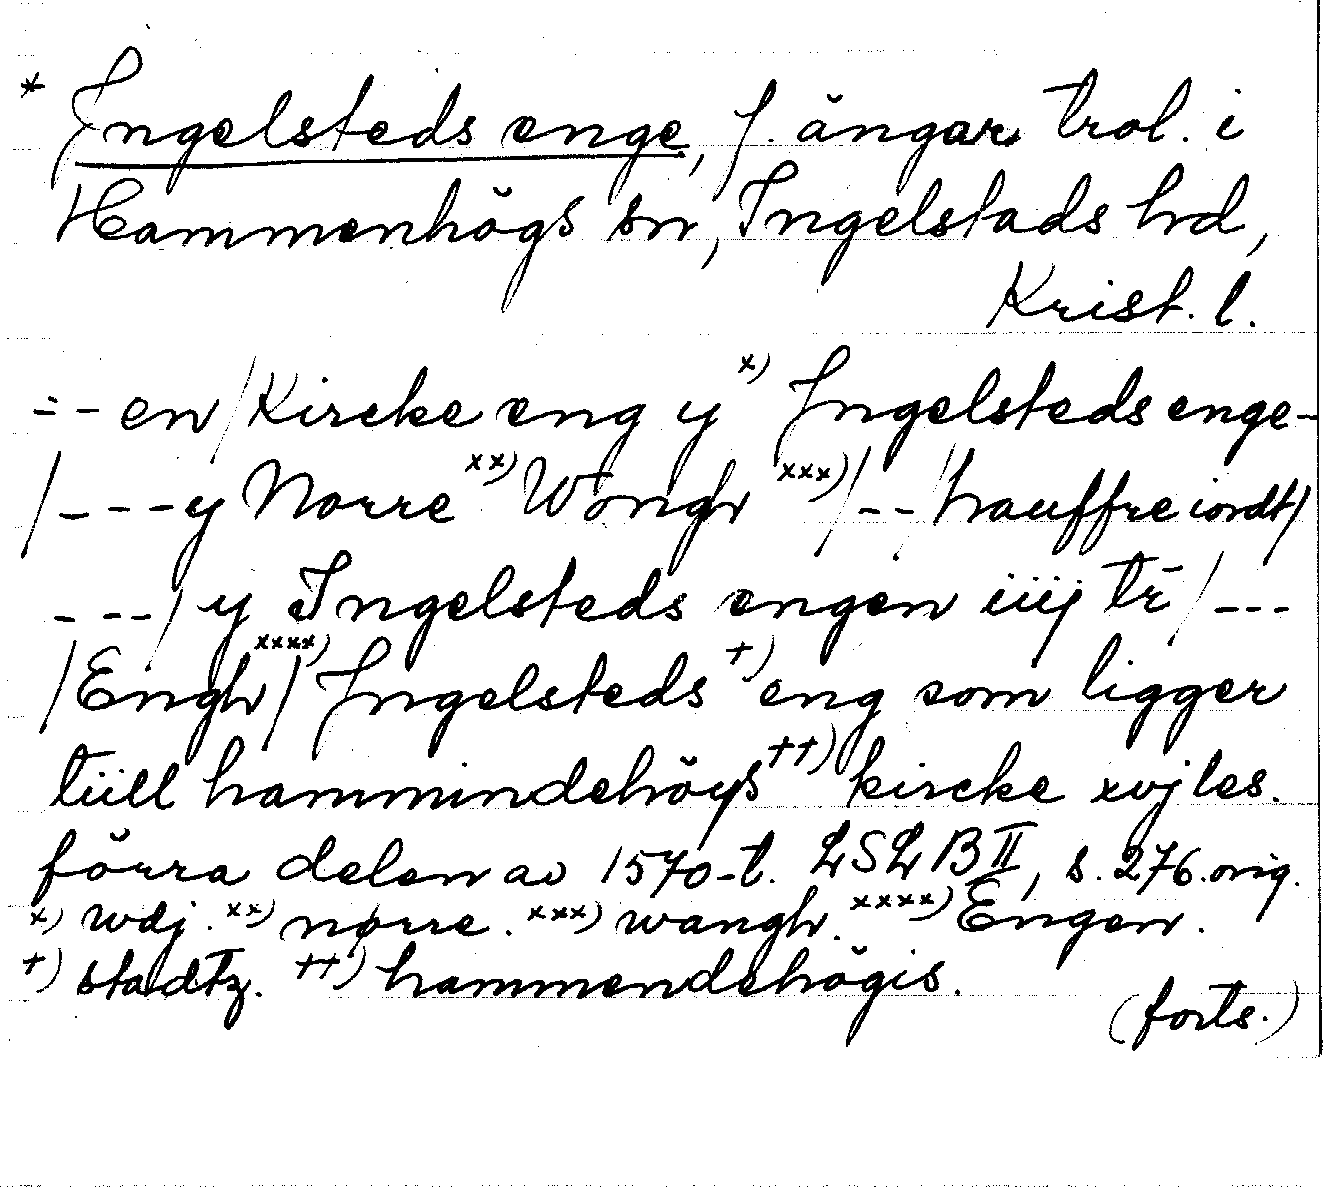 * Ingelsteds enge, f. ängar trol. i
Hammenhögs sn, Ingelstads hd,
Krist. l.
- - en/Kircke eng y x) Ingelsteds enge-
/- - - y Norre xx) Wongh xxx)/- -/hauffre iordt/
- - -/ y Ingelsteds engen iiij tr̄ /- - -
/Engh xxxx)/ Ingelsteds †) eng som ligger
tiill hammindehöys ††) kircke xvj les.
förra delen av 1570-t. LSLB II, s. 276. orig.
x) wdj. xx) nørre. xxx) wangh. xxxx) Engen.
†) stadtz. ††) hammendehögis.
(forts.)